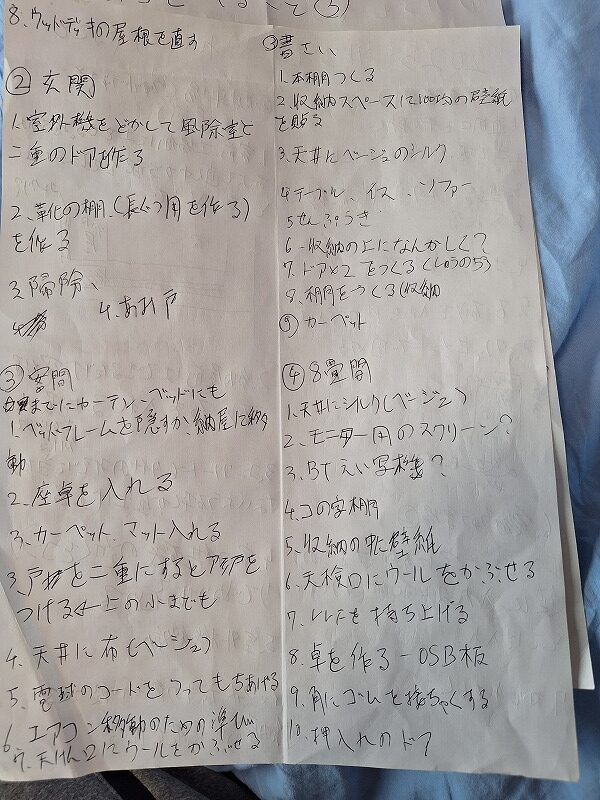 8.ウッドデッキの屋根を直す
② 玄関
1.室外機をどかして風除室と
二重のドアを作る
2.靴の棚(長ぐつ用を作る)
を作る
3.掃除、
4.あみ戸
③客間
窓までにカーテン、ベッドにも
1.ベッドフレームを隠すか、納屋に移
動
2.座卓を入れる
3.カーペット、マット入れる
3.戸を二重にするとアミ戸を
つける←上の小までも
4.天井に布(ベージュ)
5.電球のコードをつってもちあげる
6.エアコン移動のための準び
7.天けん口にウールをかぶせる
③書さい
1.本棚つくる
2.収納スペースに100均の壁紙
を貼る
3.天井にベージュのシルク
4テーブル、イス、ソファー
5せんぷうき
6-収納の上になんかしく?
7.ドア×2をつくる(しゅうのう)
8.棚をつくる(収納
⑨カーペット
④8畳間
1.天井にシルク(ベージュ)
2.モニター用のスクリーン?
3.BTえい写機?
4.コの字棚
5.収納の中に壁紙
6.天検口にウールをかぶせる
7.を持ち上げる
8.卓を作るーOSB板
9.角にゴムを接ちゃくする
10.押入れのドア